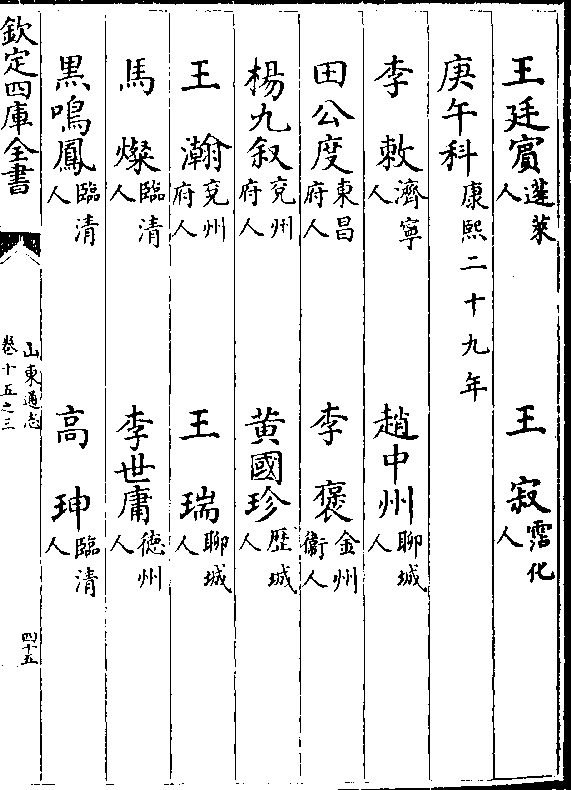 王廷賓蓬萊人　王㝛霑化人
庚午科康熙二十九年
李𢽾濟寧人　趙中州聊城人
田公度東昌府人　李褒金州衛人
楊九叙兖州府人　黄國珍歴城人
王瀚兖州府人　王瑞聊城人
馬燦臨清人　李世庸徳州人
黒鳴鳳臨清人　高珅臨清人
欽定四庫全書　山東通志卷十五之三　四十五